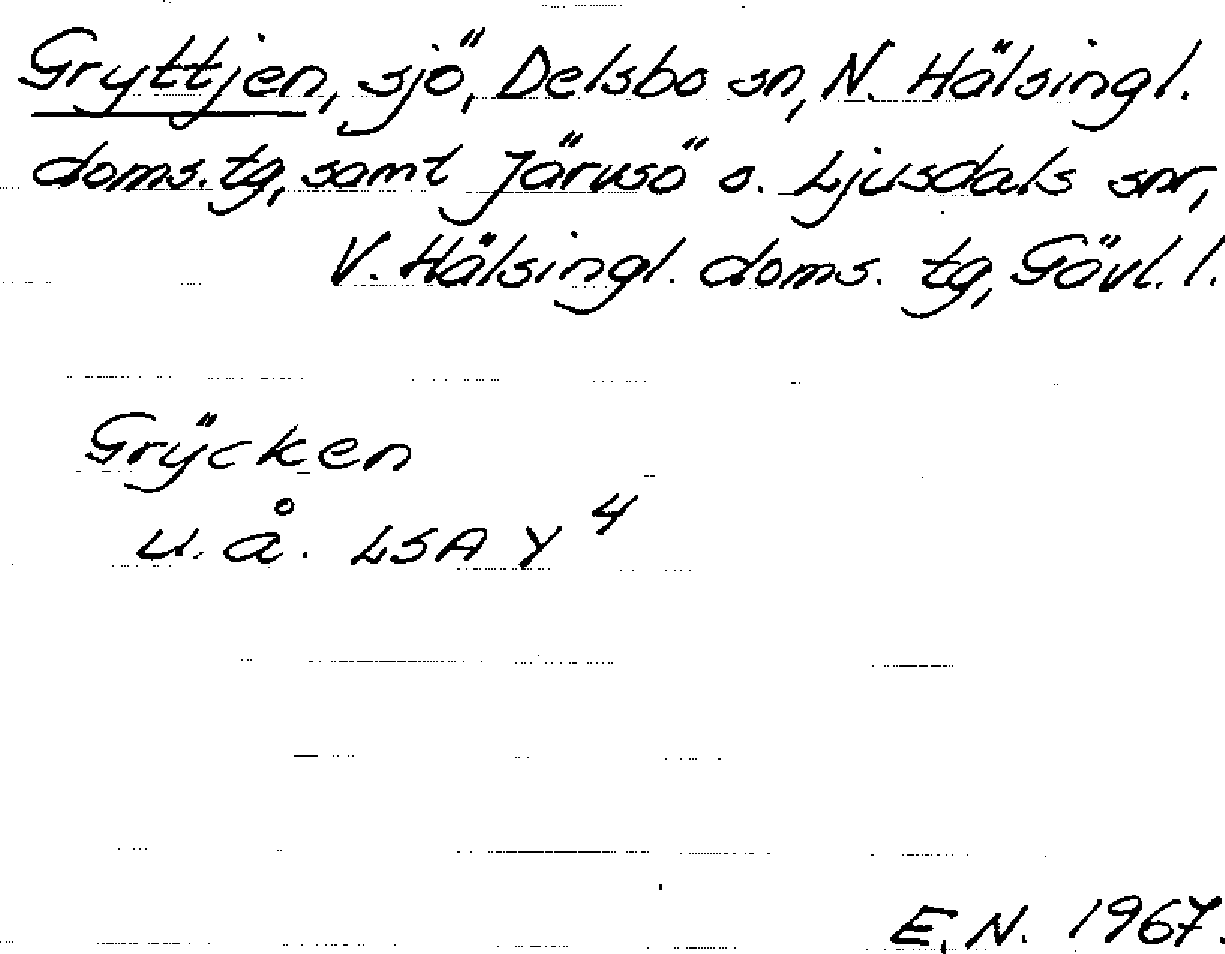 Gryttjen, sjö, Delsbo sn, N. Hälsingl.
doms. tg, samt Järvsö o. Ljusdals snr,
V. Hälsingl. doms. tg, Gävl. l.
Grÿcken
u. å. LSA Y 4
E. N. 1967.